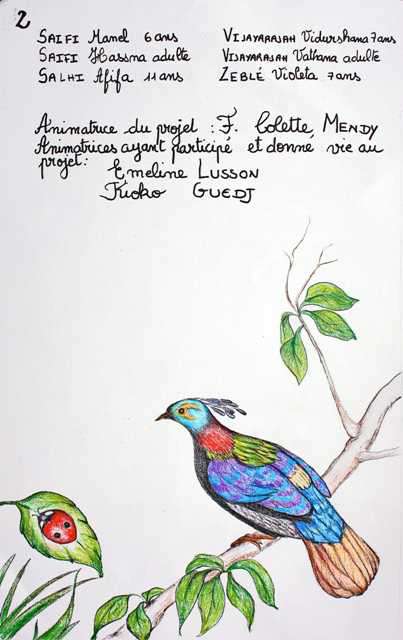 2
SAIFI Manel 6 ans
SAIFI Hassna adulte
SALHI Afifa 11 ans
VIJAYARAJAH Vidurshana 7 ans
VIJAYARAJAH Vathana adulte
ZEBLÉ Violeta 7 ans
Animatrice du projet : F. Colette, MENDY
Animatrices ayant participé et donné vie au
projet:
Emeline LUSSON
Kioko GUEDJ